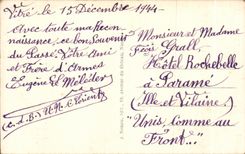 Vitré le 15 Décembre 1944
Avec toute ma Recon
naissance, ce bon Souvenir
du Passé. Votre Ami
et Frère d'Armes
Eugène Le Méléder
Monsieur et Madame
Feois Grall
Hôtel Rochebelle
à Paramé
(Ille et Vilaine)
"Unis, Comme au
Front"...